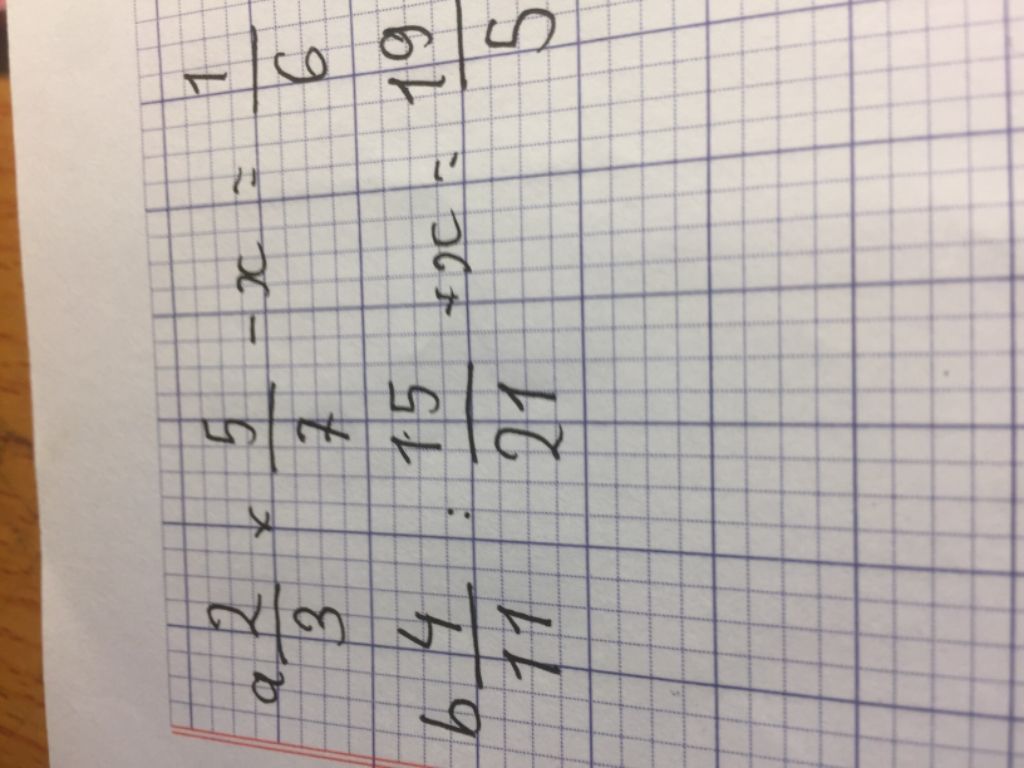 a 2/3 x 5/7 - x = 1/6
b 4/11 : 15/21 + x = 19/5